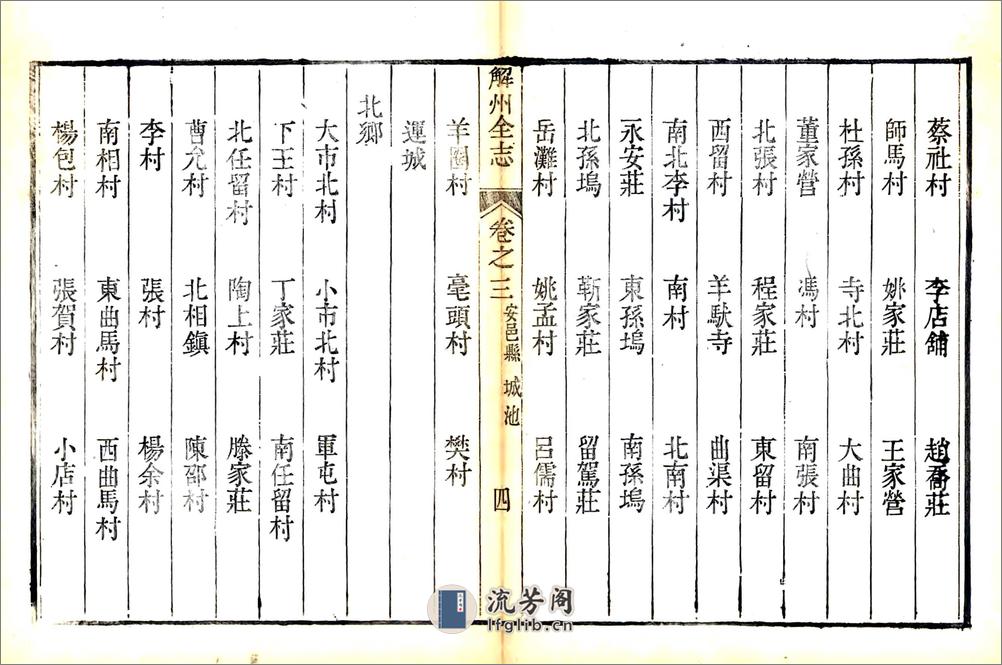 蔡社村 李店舖 趙喬莊
師馬村 姚家莊 王家營
杜孫村 寺北村 大曲村
董家營 馮村 南張村
北張村 程家莊 東留村
西留村 羊馱寺 曲渠村
南北李村 南村 北南村
永安莊 東孫塢 南孫塢
北孫塢 靳家莊 留駕莊
岳灘村 姚孟村 呂儒村
解州全志 卷之三 安邑縣 城池 四
羊圈村 亳頭村 樊村
運城
北鄉
大市北村 小市北村 軍屯村
下王村 丁家莊 南任留村
北任留村 陶上村 滕家莊
曹允村 北相鎮 陳邵村
李村 張村 楊余村
南相村 東曲馬村 西曲馬村
楊包村 張賀村 小店村
流芳阁
lfglib.cn